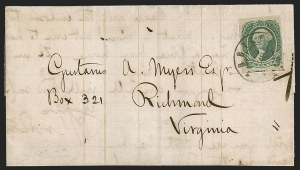 Gustavus A. Myers Esq.
Box 321
Richmond
Virginia